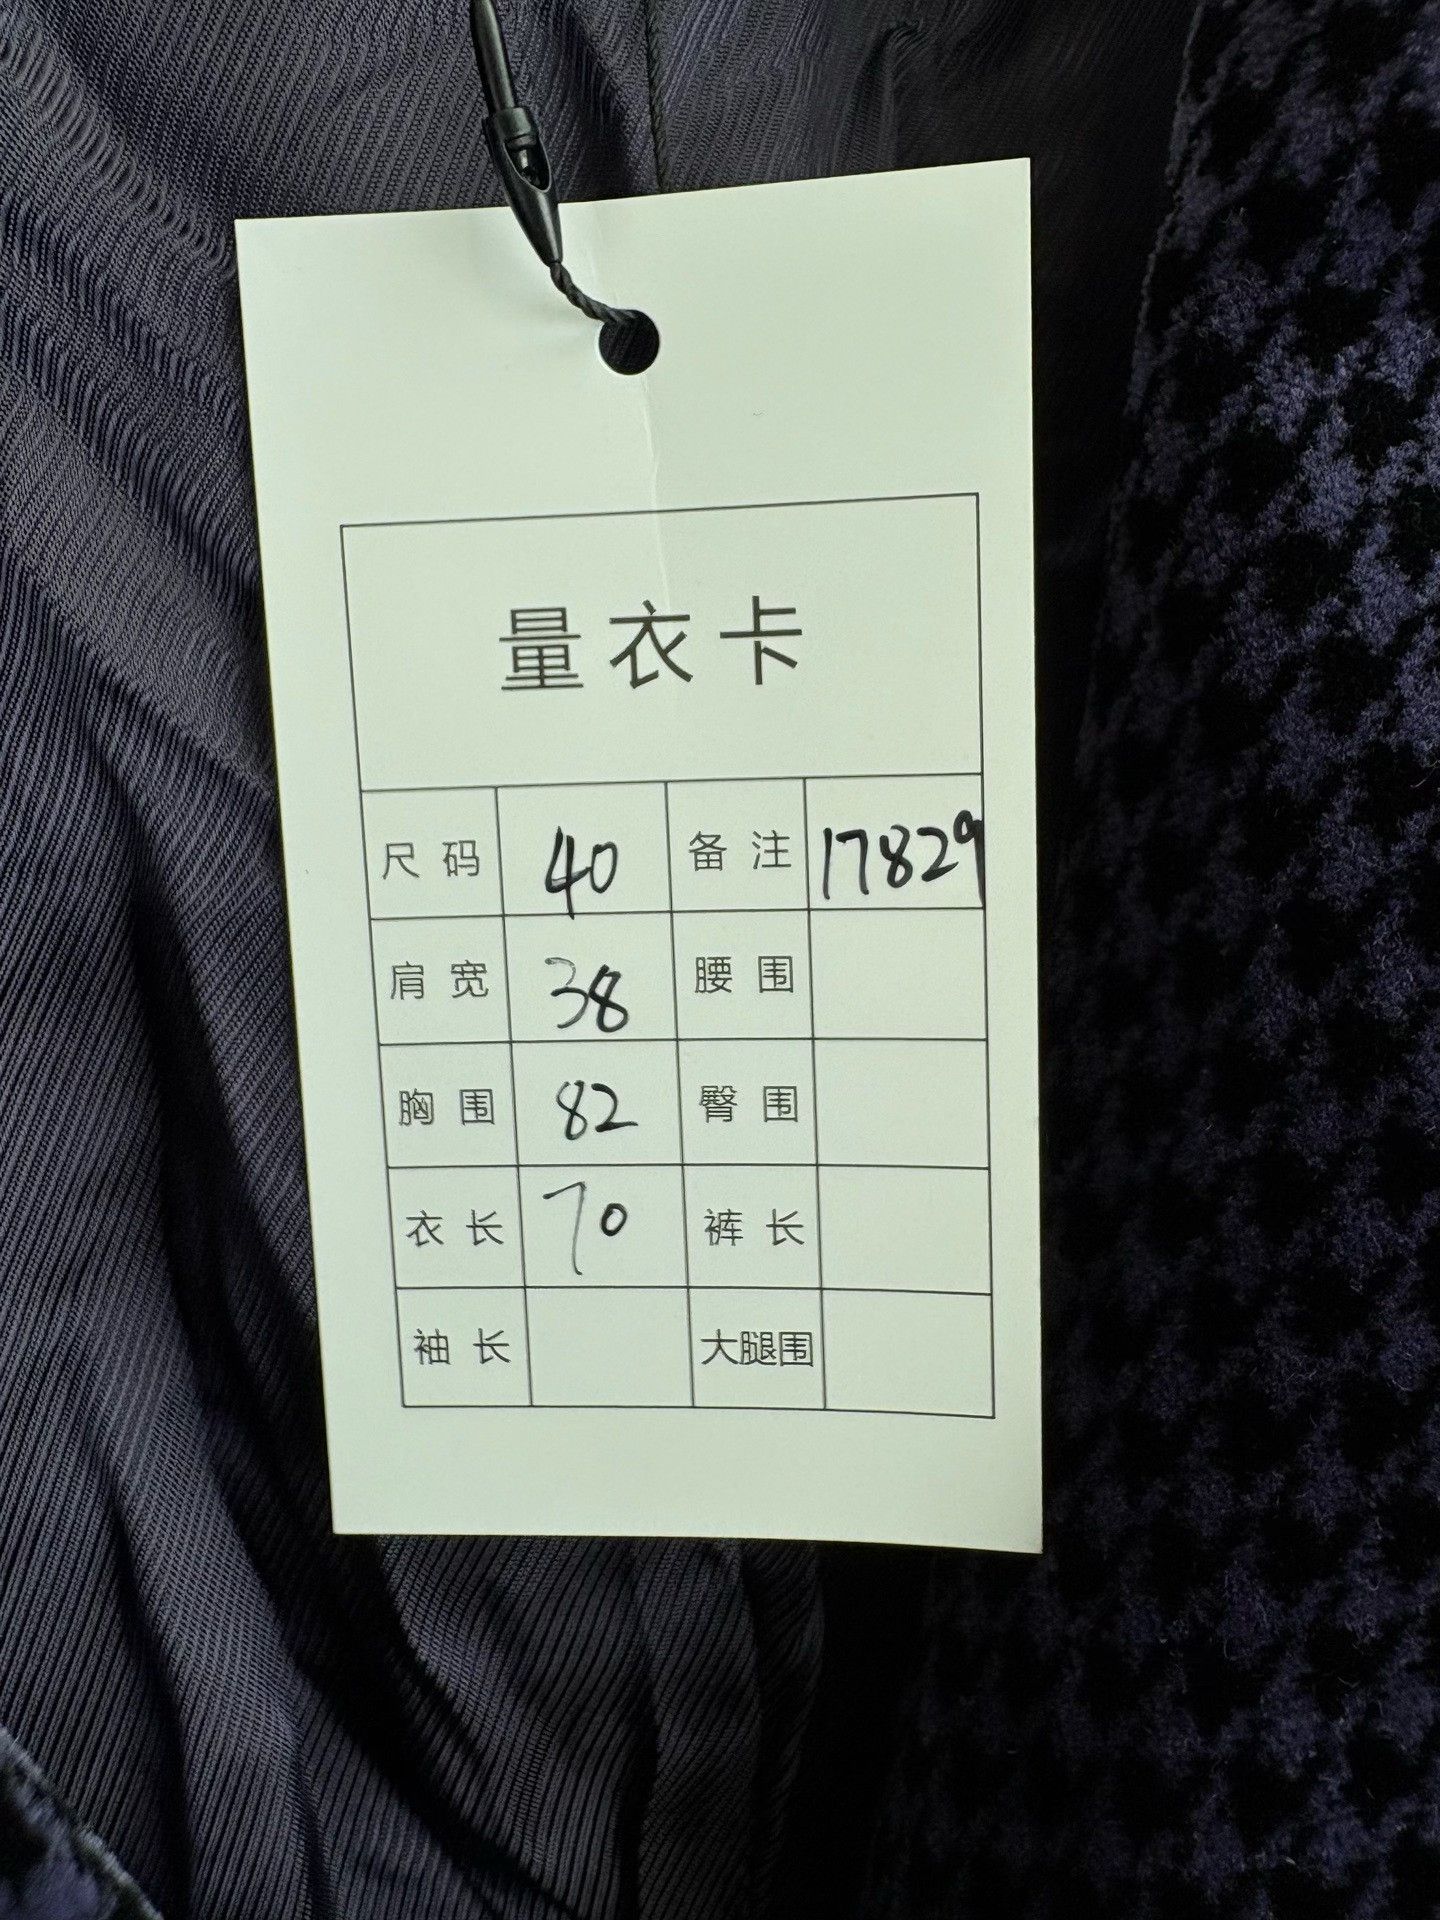 量衣卡
尺码 40 备注 17829
肩宽 38 腰围
胸围 82 臀围
衣长 70 裤长
袖长 大腿围